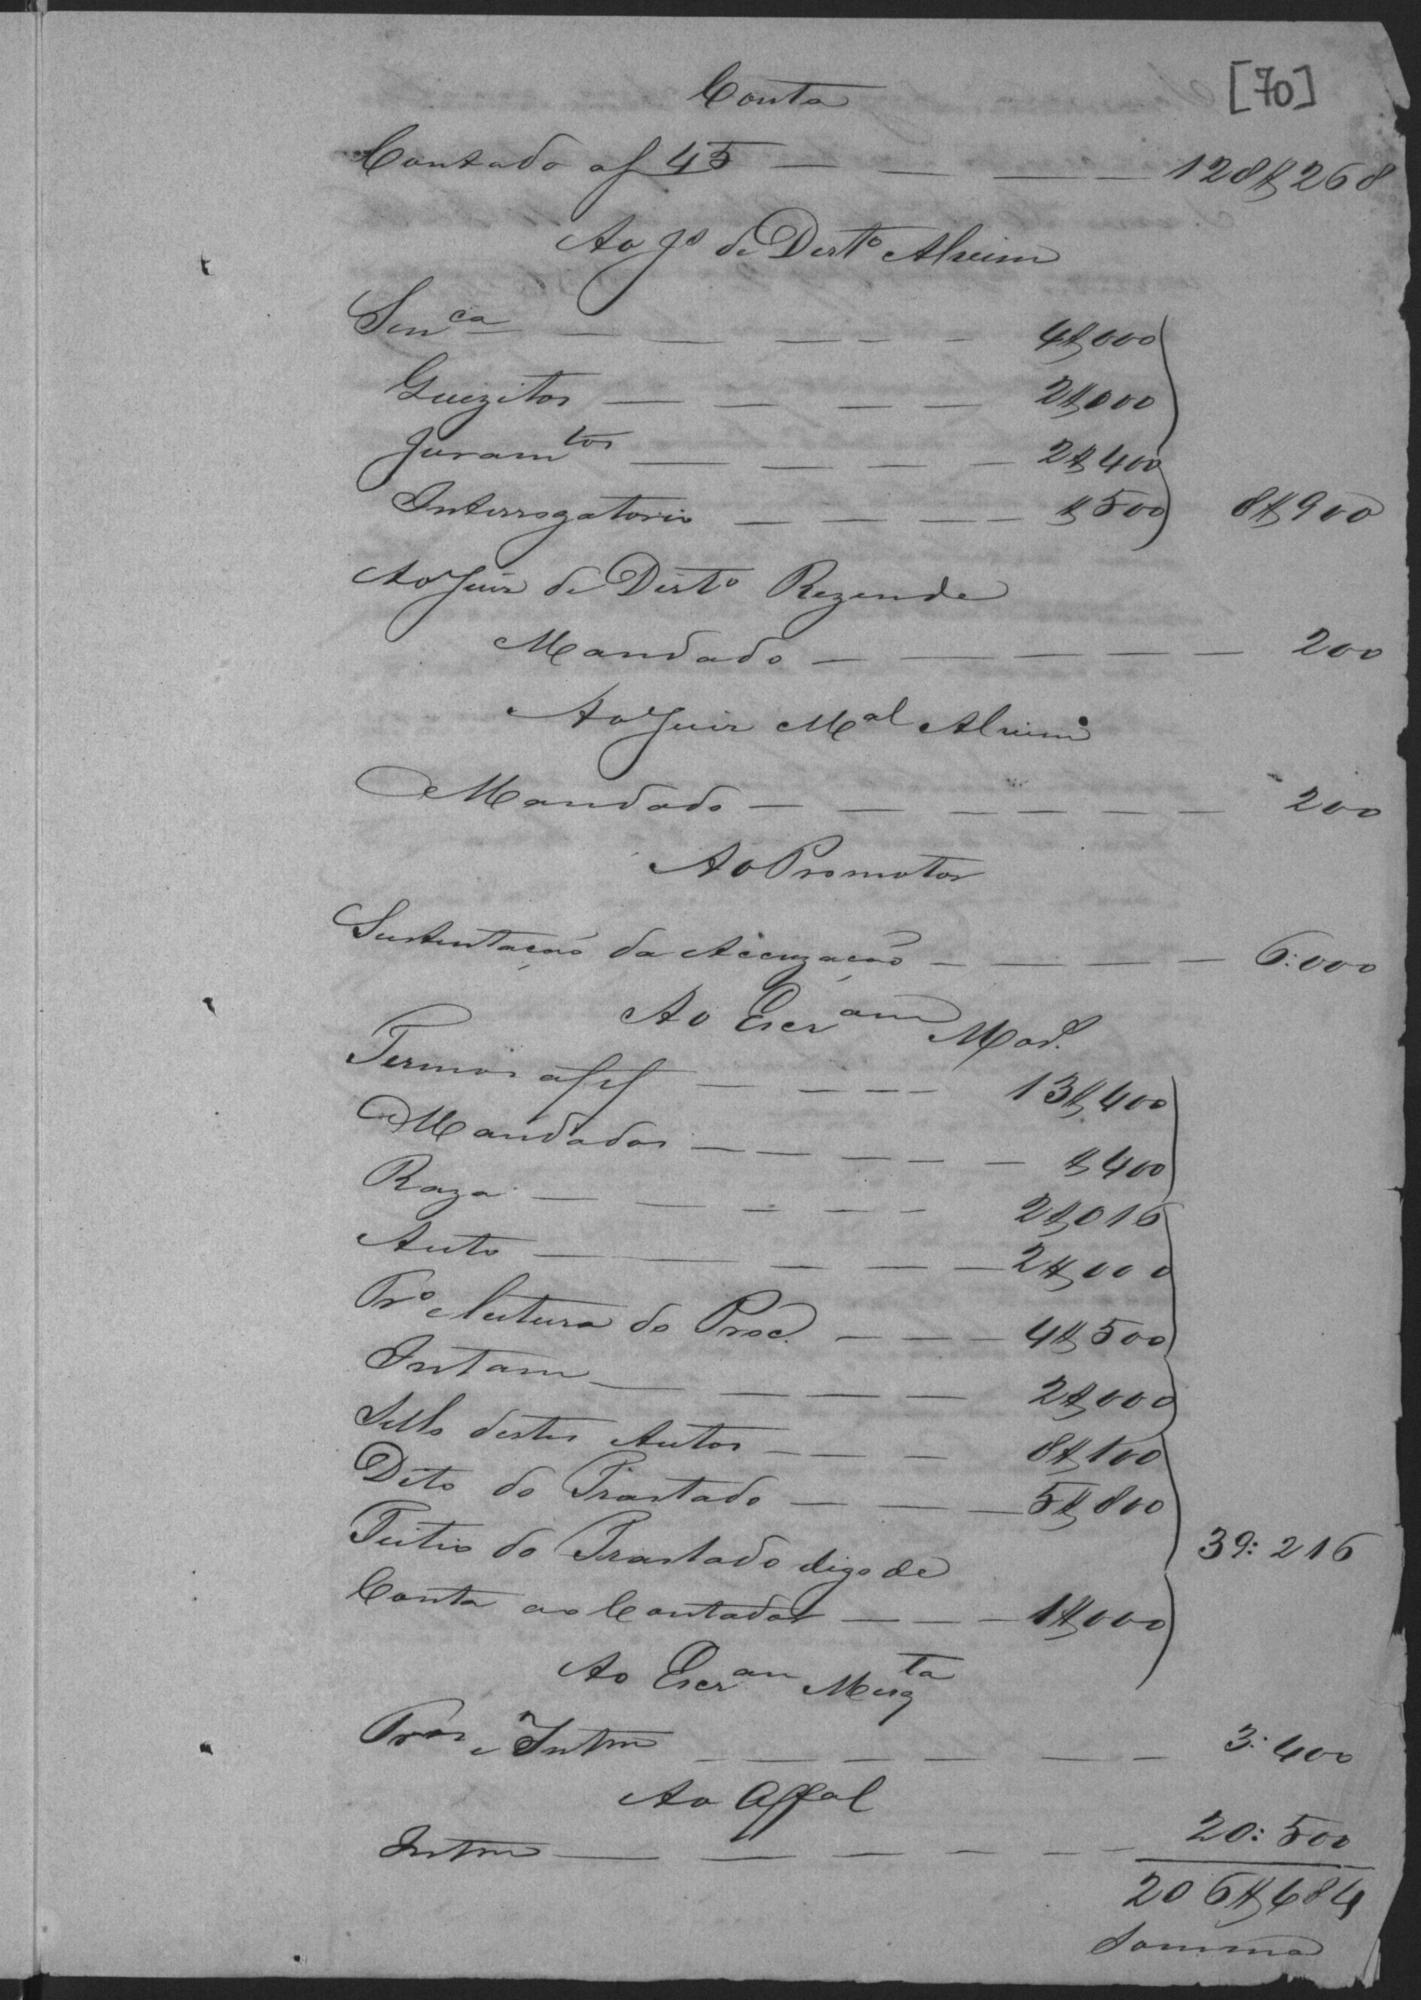 [70]
Conta
Contado af 45 — — — — 128$268
Ao Js de Dirto Alvim
Senca — — — — — — 4$000
Quezitos — — — — 2$000
Juramtos — — — — 2$400
Interrogatorio — — — — $500 8$900
Ao Juiz de Dirto Rezende
Mandado — — — — — — 200
Ao Juiz Mal Alvim
Mandado — — — — — — — 200
Ao Promotor
Sustentação da Accuzação — — — — — 6:000
Ao Escram Mad.
Termos aff — — — — 13$400
Mandados — — — — — — $400
Raza — — — — — — 2$016
Auto — — — — — 2$000
Tro leitura do Proc. — — — 4$500
Intam — — — — — 2$000
Sello destes Autos — — — — 8$100
Dito do Trastado — — — 5$800
Feitio do Trastado digo de 39:216
Conta ao Contador — — — 1$000
Ao Escram Mesqta
e Intm — — — — — — — 3:400
Ao Offal
Intm — — — — — — — 20:500
206$684
Somma